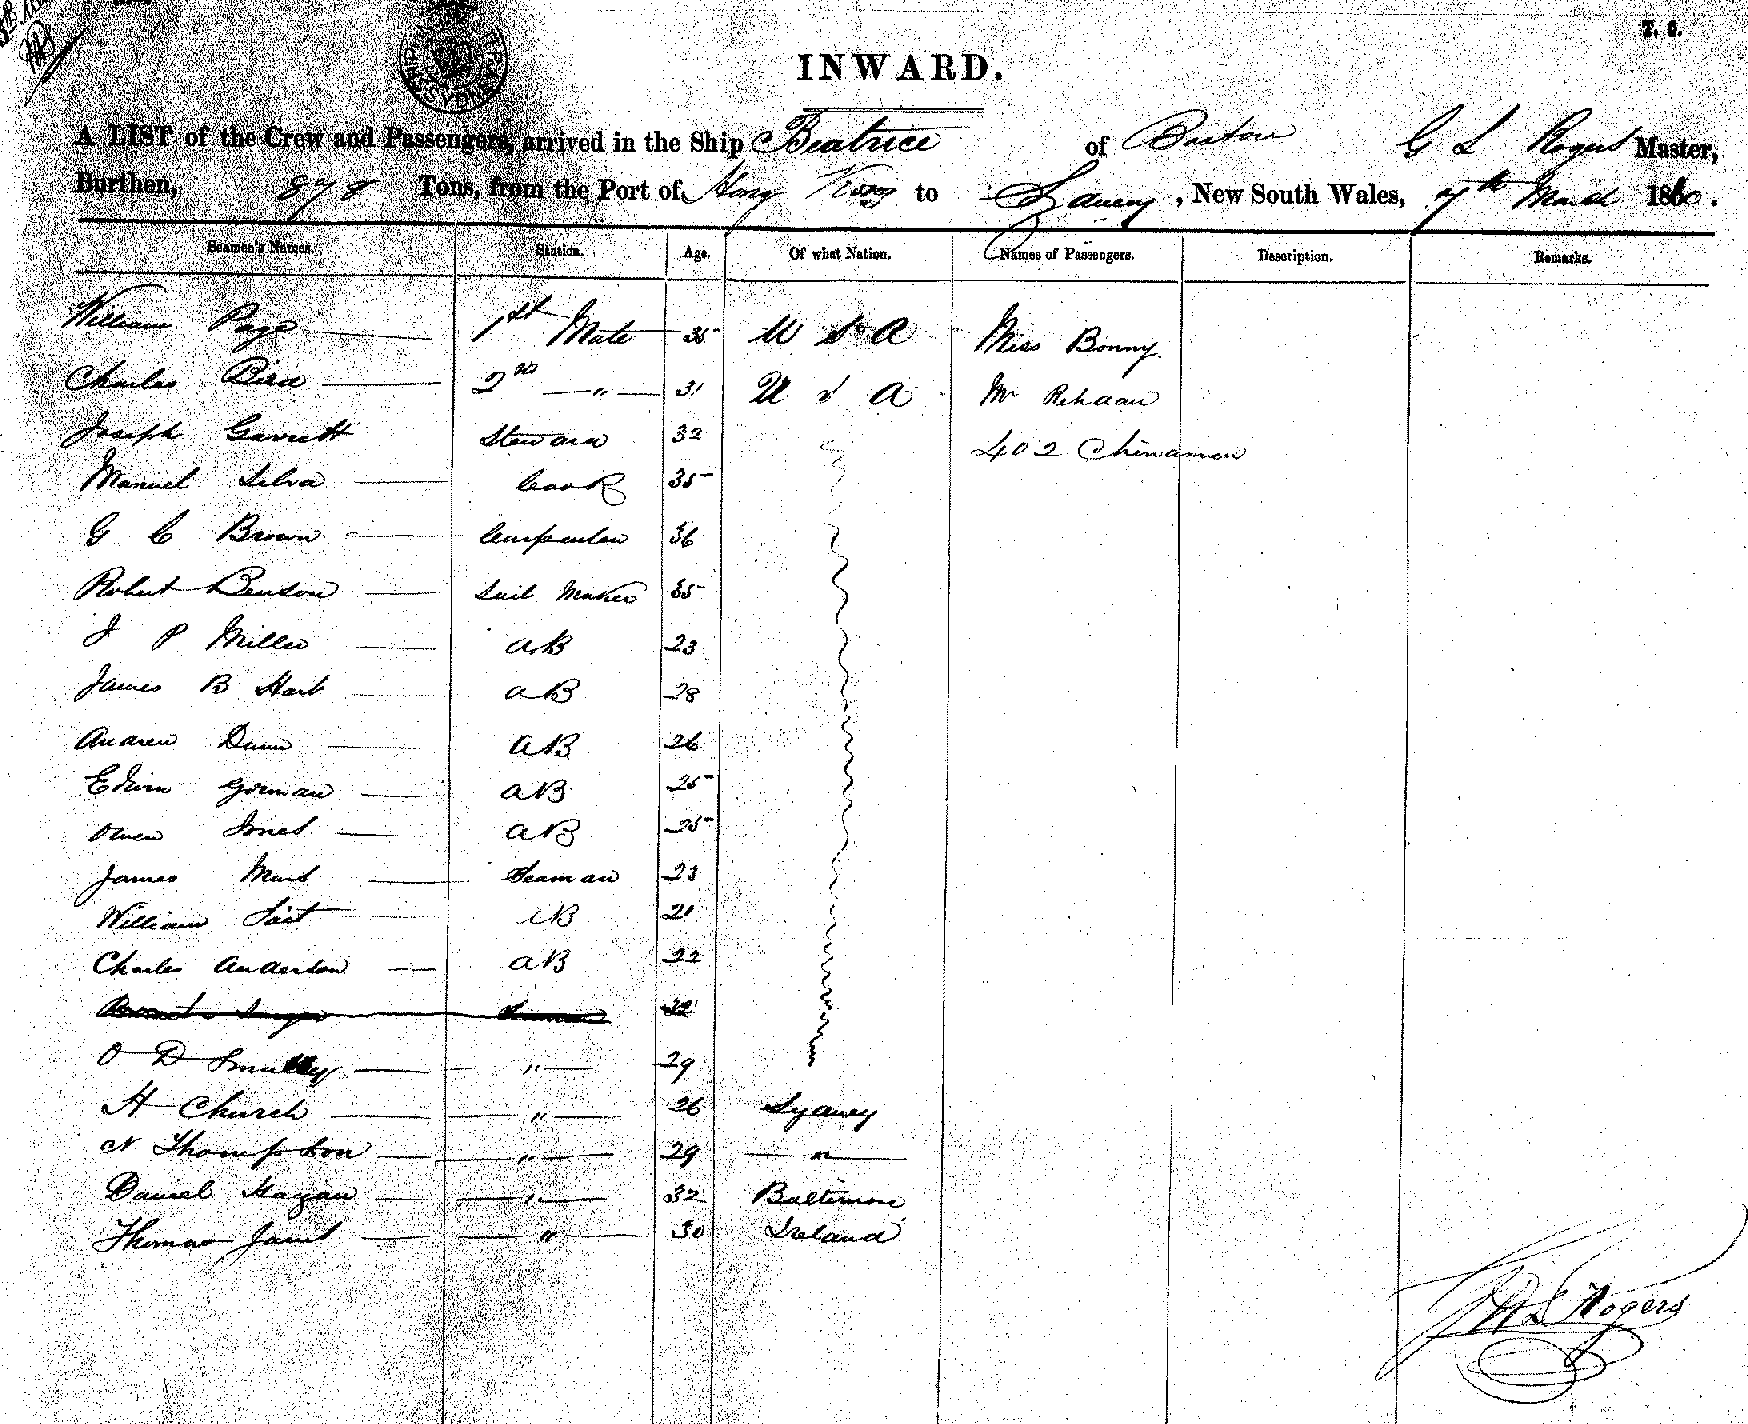 INWARD.
A LIST of the Crew and Passengers, arrived in the Ship Beatrice of Boston G L Rogers Master,
Burthen, 878 Tons, from the Port of Hong Kong to Sydney, New South Wales, 7th March 1860.
Seamen's Names. Station. Age. Of what Nation. Names of Passengers. Description. Remarks.
William Page 1st Mate 35 U S A Miss Bonny
Charles Bird 2nd " 31 U S A Mr
Joseph Garrett Steward 32 402 Chinamen
Manuel Silva Cook 35
G C Brown Carpenter 36
Robert Benson Sail Maker 35
J P Miller AB 23
James B Hart AB 28
Andrew Dunn AB 26
Edwin Gorman AB 25
Owen Jones AB 25
James Seaman 23
William AB 21
Charles Anderson AB 22
32
O D " 29
H Church " 26 Sydney
N Thompson " 29 "
Daniel Hagan " 32 Baltimore
Thomas " 30 Ireland
Rogers